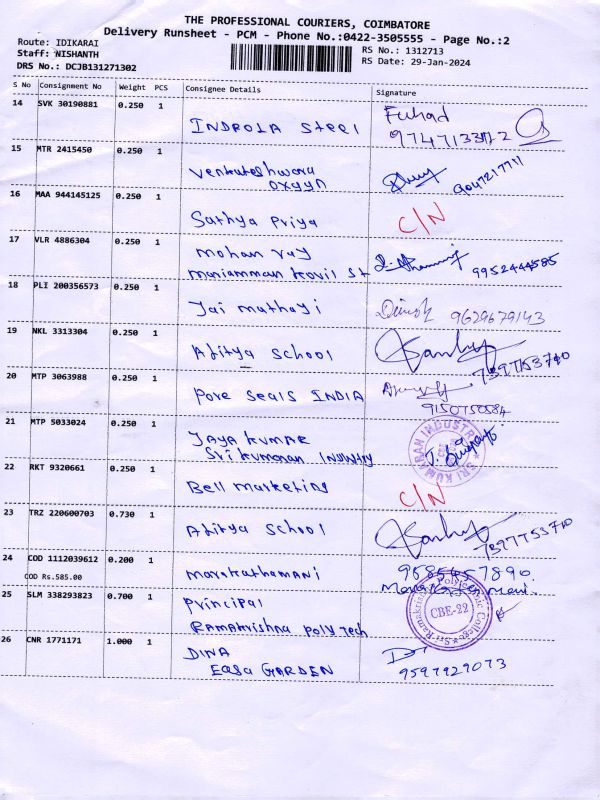 THE PROFESSIONAL COURIERS, COIMBATORE
Delivery Runsheet - PCM - Phone No.:0422-3505555 - Page No.:2
Route: IDIKARAI
Staff: NISHANTH
DRS No.: DCJB131271302
RS No.: 1312713
RS Date: 29-Jan-2024
S No Consignment No Weight PCS Consignee Details Signature
14 SVK 30190881 0.250 1
INDROLA Steel
Fahad
15 MTR 2415450 0.250 1
Venkateshwara
oxygyn
9047217711
16 MAA 944145125 0.250 1
Sathya Priya
C/N
17 VLR 4886304 0.250 1
mohan ray
mariamman kovil St
9952444585
18 PLI 200356573 0.250 1
Jai mathaji
9629679143
19 NKL 3313304 0.250 1
Aditya School
7397753710
20 MTP 3063988 0.250 1
Pore Seals INDIA
9150750584
21 MTP 5033024 0.250 1
JAYA KUMAR
Sri kumaran Industry
SRI KUMARAN INDUSTR
22 RKT 9320661 0.250 1
Bell marketing
C/N
23 TRZ 220600703 0.730 1
Aditya School
7397753710
24 COD 1112039612 0.200 1
COD Rs.585.00
marakathamani
25 SLM 338293823 0.700 1
Principal
Ramakrishna Poly Tech
Sri Ramakrishna Polytechnic College
CBE-22
26 CNR 1771171 1.000 1
DINA
Easa GARDEN
9597929073